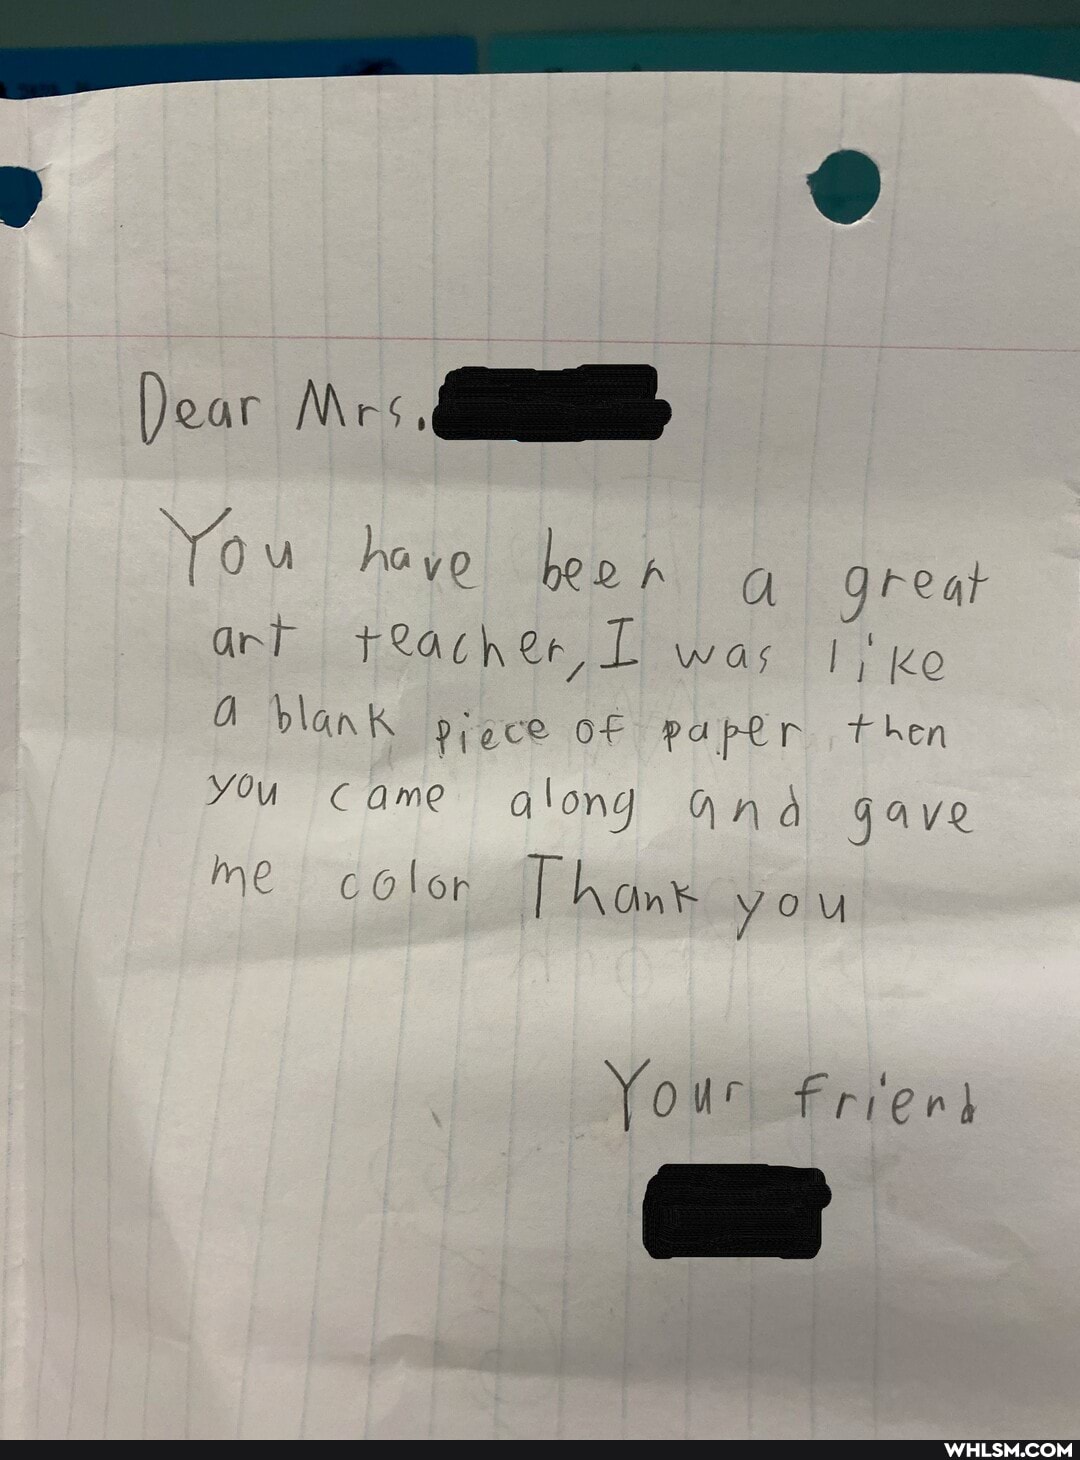 Dear Mrs.
You have been a great
art teacher, I was like
a blank piece of paper then
you came along and gave
me color Thank you
Your friend
WHLSM.COM